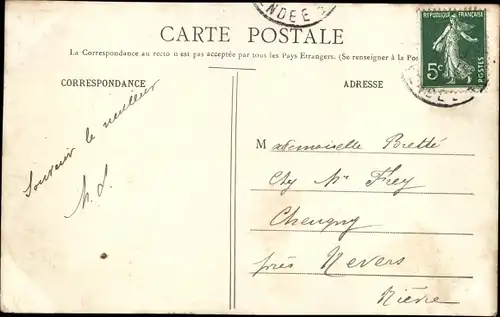 VENDEE
CARTE POSTALE
La Correspondance au recto n'est pas acceptée par tous les Pays Etrangers. (Se renseigner à la Pos
REPUBLIQUE FRANÇAISE
5c
POSTES
VENDEE
CORRESPONDANCE
ADRESSE
Souvenir le meilleur
M. L
Mademoiselle Bretté
Chy Mr Frey
Cheugny
près Nevers
Nièvre